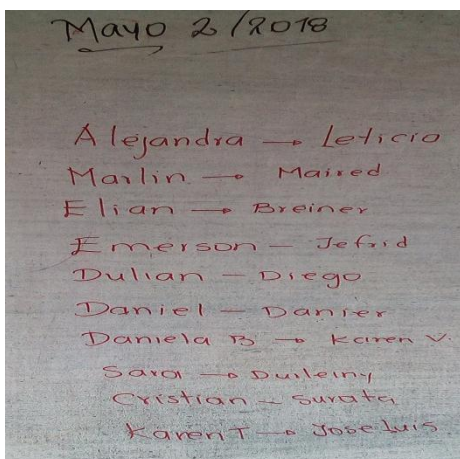 Mayo 2/2018
Alejandra → Leticia
Marlin → Maired
Elian → Breiner
Emerson - Jefrid
Dulian - Diego
Daniel - Danier
Daniela B → Karen V.
Sara → Duileiny
Cristian - Surata
Karen T → Jose Luis